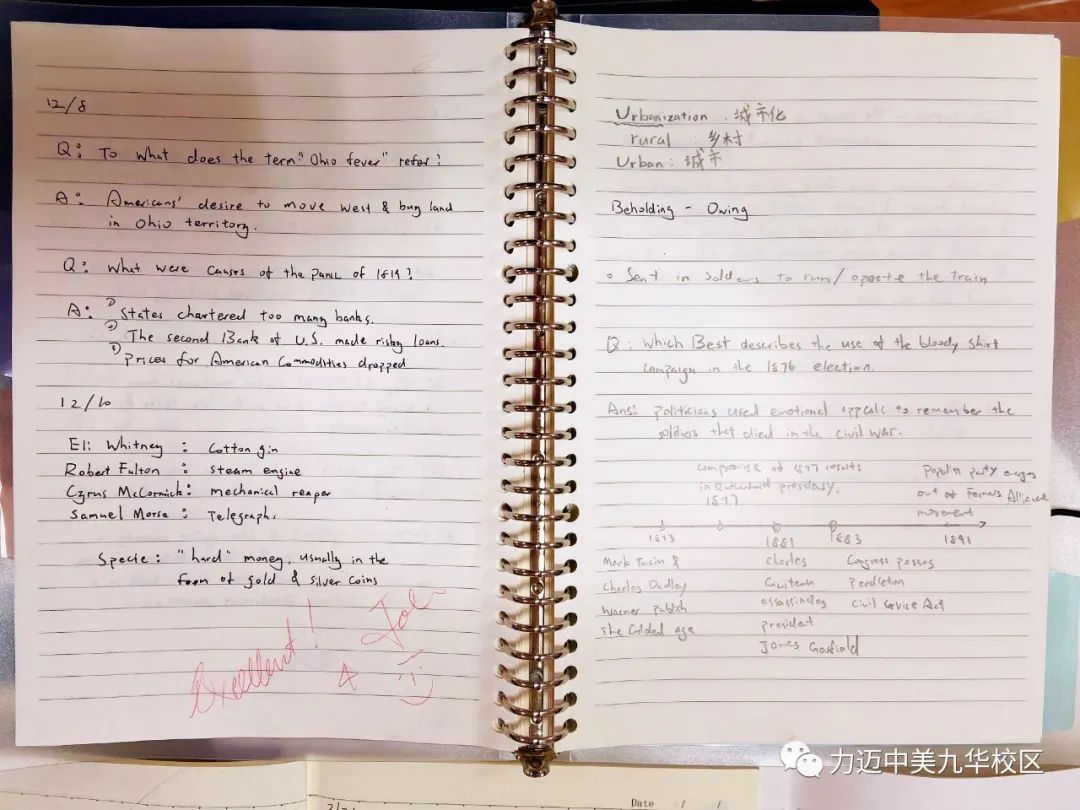 12/8
Q: To what does the term "Ohio fever" refer?
A: Americans' desire to move west & buy land
in Ohio territory.
Q: What were causes of the panic of 1819?
A: ① States chartered too many banks.
② The second Bank of U.S. made risky loans.
③ prices for American Commodities dropped
12/10
Eli Whitney : Cotton gin
Robert Fulton : steam engine
Cyrus McCormick: mechanical reaper
Samuel Morse : Telegraph.
Specie : "hard" money, usually in the
form of gold & silver coins
Excellent!
Urbanization : 城市化
rural : 乡村
Urban : 城市
Beholding - Owing
Sent in soldiers to run/operate the train
Q: which Best describes the use of the bloody shirt
campaign in the 1876 election.
Ans: politicians used emotional appeals to remember the
soldiers that died in the civil war.
Compromise of 1877 results
in
1877
Populist party emerges
out of Farmers Alliance
movement
1873
1881
1883
1891
Mark Twain &
Charles Dudley
Warner publish
The Gilded age
Charles
Guiteau
assassinates
president
James Garfield
Congress passes
Pendleton
Civil Service Act
Date / /
力迈中美九华校区